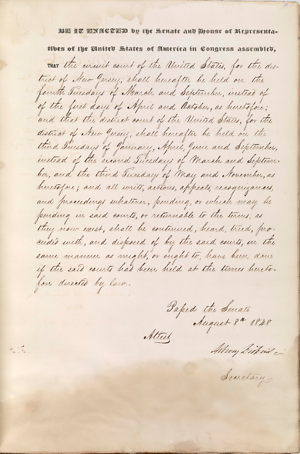 BE IT ENACTED by the Senate and House of Representa-
tives of the United States of America in Congress assembled,
THAT the circuit court of the United States, for the dis-
trict of New Jersey, shall hereafter be held on the
fourth Tuesdays of March and September, instead of
of the first days of April and October, as heretofore;
and that the district court of the United States, for the
district of New Jersey, shall hereafter be held on the
third Tuesdays of January, April, June and September,
instead of the second Tuesday of March and Septem-
ber, and the third Tuesday of May and November, as
heretofore; and all writs, actions, appeals, recognizances,
and proceedings whatever, pending, or which may be
pending in said courts, or returnable to the terms, as
they now exist, shall be continued, heard, tried, pro-
ceeded with, and disposed of by the said courts, in the
same manner as might, or ought to, have been done
if the said courts had been held at the times hereto-
fore directed by law.
Passed the Senate
August 8th 1848
Attest
Asbury Dickins
Secretary